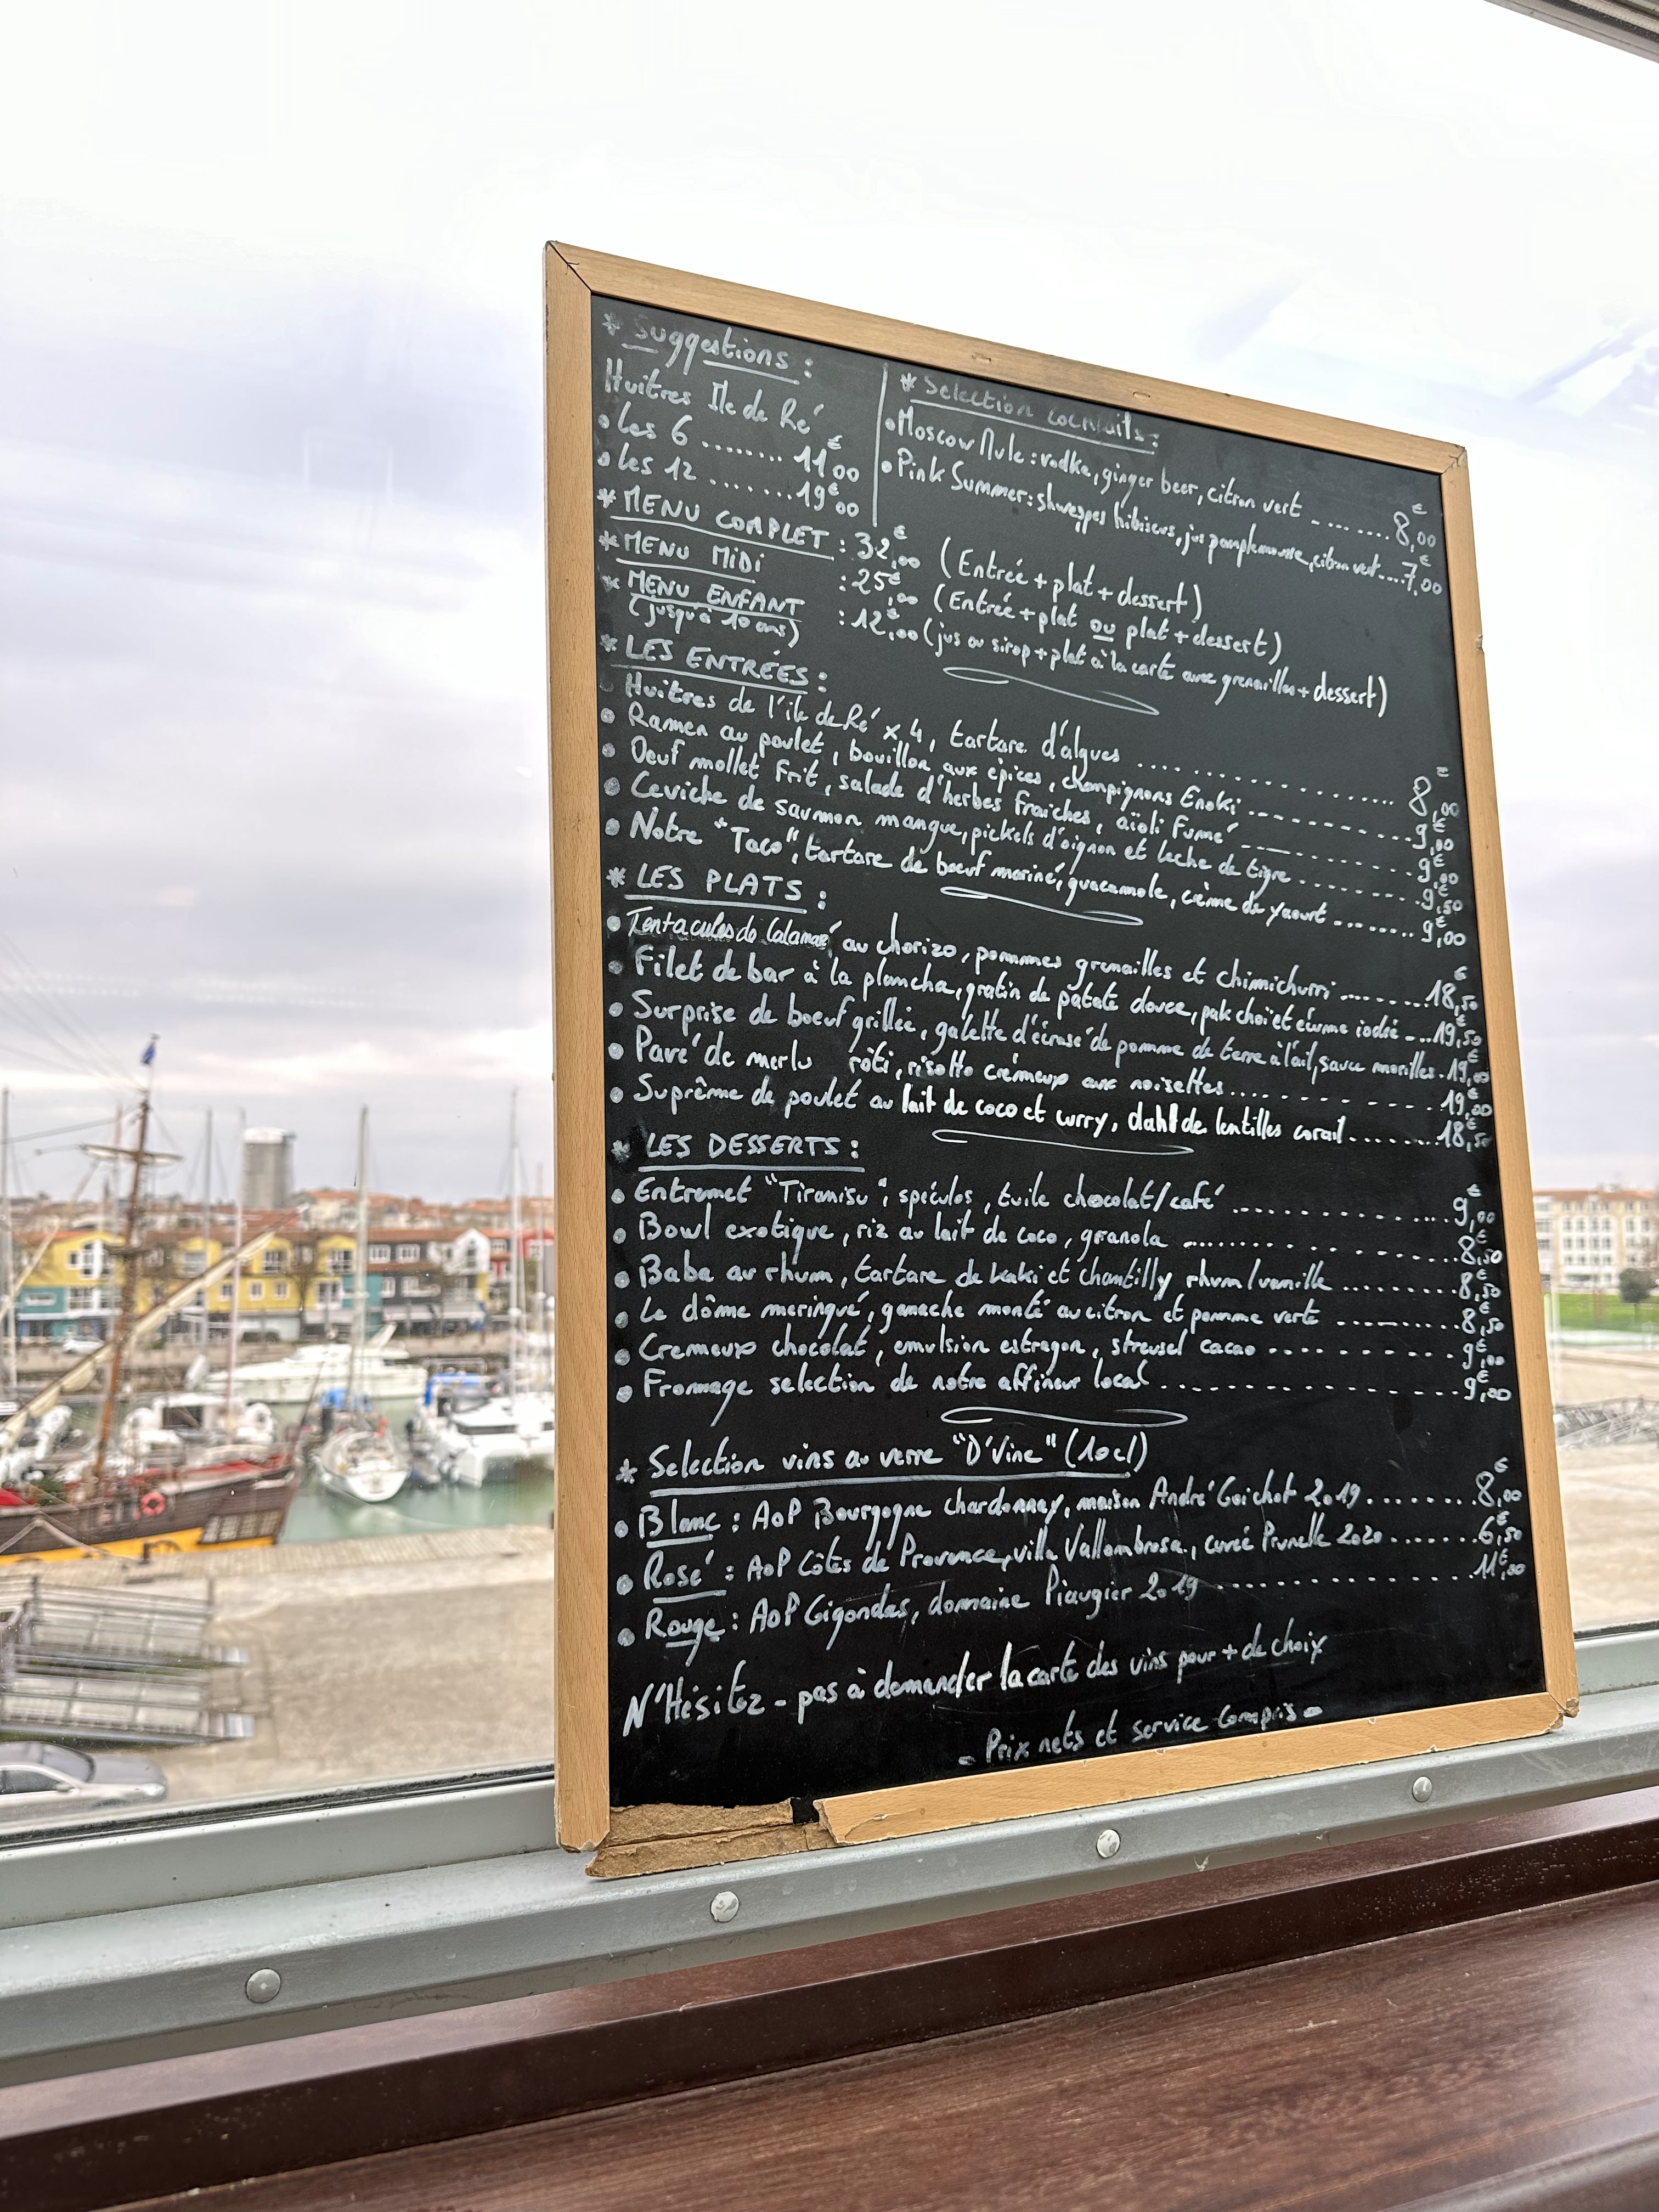 * Suggestions :
Huitres Ile de Ré
• Les 6 ........ 11€00
• Les 12 ........ 19€00
* Selection cocktails :
• Moscow Mule : vodka, ginger beer, citron vert ........ 8€,00
• Pink Summer : shweppes hibiscus, jus pamplemousse, citron vert .... 7€,00
* MENU COMPLET : 32€,00 (Entrée + plat + dessert)
* MENU MIDI : 25€,00 (Entrée + plat ou plat + dessert)
* MENU ENFANT : 12€,00 (jus ou sirop + plat à la carte avec grenailles + dessert)
(jusqu'à 10 ans)
* LES ENTRÉES :
• Huitres de l'île de Ré x 4, tartare d'algues ........ 8€,00
• Ramen au poulet, bouillon aux épices, champignons Enoki ........ 9€,00
• Oeuf mollet frit, salade d'herbes fraiches, aïoli fumé ........ 9€,00
• Ceviche de saumon mangue, pickels d'oignon et leche de tigre ........ 9€,50
• Notre "Taco", tartare de boeuf mariné, guacamole, crème de yaourt ........ 9€,00
* LES PLATS :
• Tentacules de Calamar au chorizo, pommes grenailles et chimichurri ........ 18€,50
• Filet de bar à la plancha, gratin de patate douce, pak choï et écume iodée ... 19€,50
• Surprise de boeuf grillée, galette d'écrasé de pomme de terre à l'ail, sauce morilles . 19€,00
• Pavé de merlu rôti, risotto crémeux aux noisettes ........ 19€,00
• Suprême de poulet au lait de coco et curry, dahl de lentilles corail ........ 18€,50
* LES DESSERTS :
• Entremet "Tiramisu", spéculos, tuile chocolat/café ........ 9€,00
• Bowl exotique, riz au lait de coco, granola ........ 8€,50
• Baba au rhum, tartare de kaki et chantilly rhum/vanille ........ 8€,50
• Le dôme meringué, ganache monté au citron et pomme verte ........ 8€,50
• Cremeux chocolat, emulsion estragon, streusel cacao ........ 9€,00
• Fromage selection de notre affineur local ........ 9€,00
* Selection vins au verre "D'Vine" (10cl)
• Blanc : AoP Bourgogne chardonnay, maison André Goichot 2019 ........ 8€,00
• Rosé : AoP Côtes de Provence, villa Vallombrosa, cuvée Prunelle 2020 ........ 6€,50
• Rouge : AoP Gigondas, domaine Piaugier 2019 ........ 11€,00
N'Hésitez - pas à demander la carte des vins pour + de choix
- Prix nets et service compris -